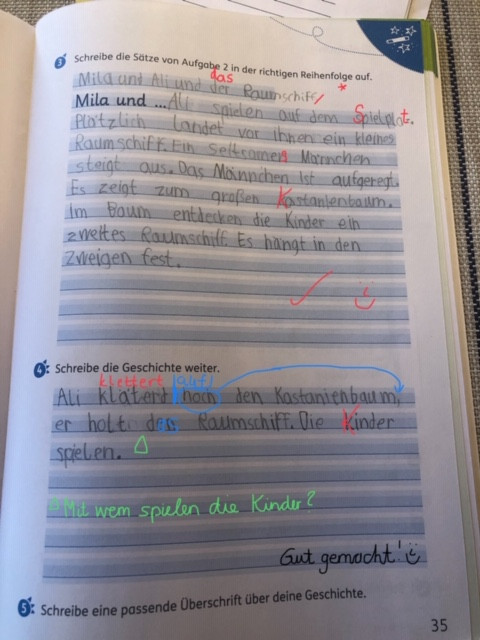 3 Schreibe die Sätze von Aufgabe 2 in der richtigen Reihenfolge auf.
das
Mila und Ali und der Raumschiff *
Mila und ... Ali spielen auf dem Spielplatz.
Plötzlich landet vor ihnen ein kleines
Raumschiff. Ein seltsames Männchen
steigt aus. Das Männchen ist aufgeregt.
Es zeigt zum großen Kastanienbaum.
Im Baum entdecken die Kinder ein
zweites Raumschiff. Es hängt in den
Zweigen fest.
4 Schreibe die Geschichte weiter.
klettert auf
Ali klaterd noch den Kastanienbaum,
er holt das Raumschiff. Die Kinder
spielen.
Mit wem spielen die Kinder?
Gut gemacht!
5 Schreibe eine passende Überschrift über deine Geschichte.
35